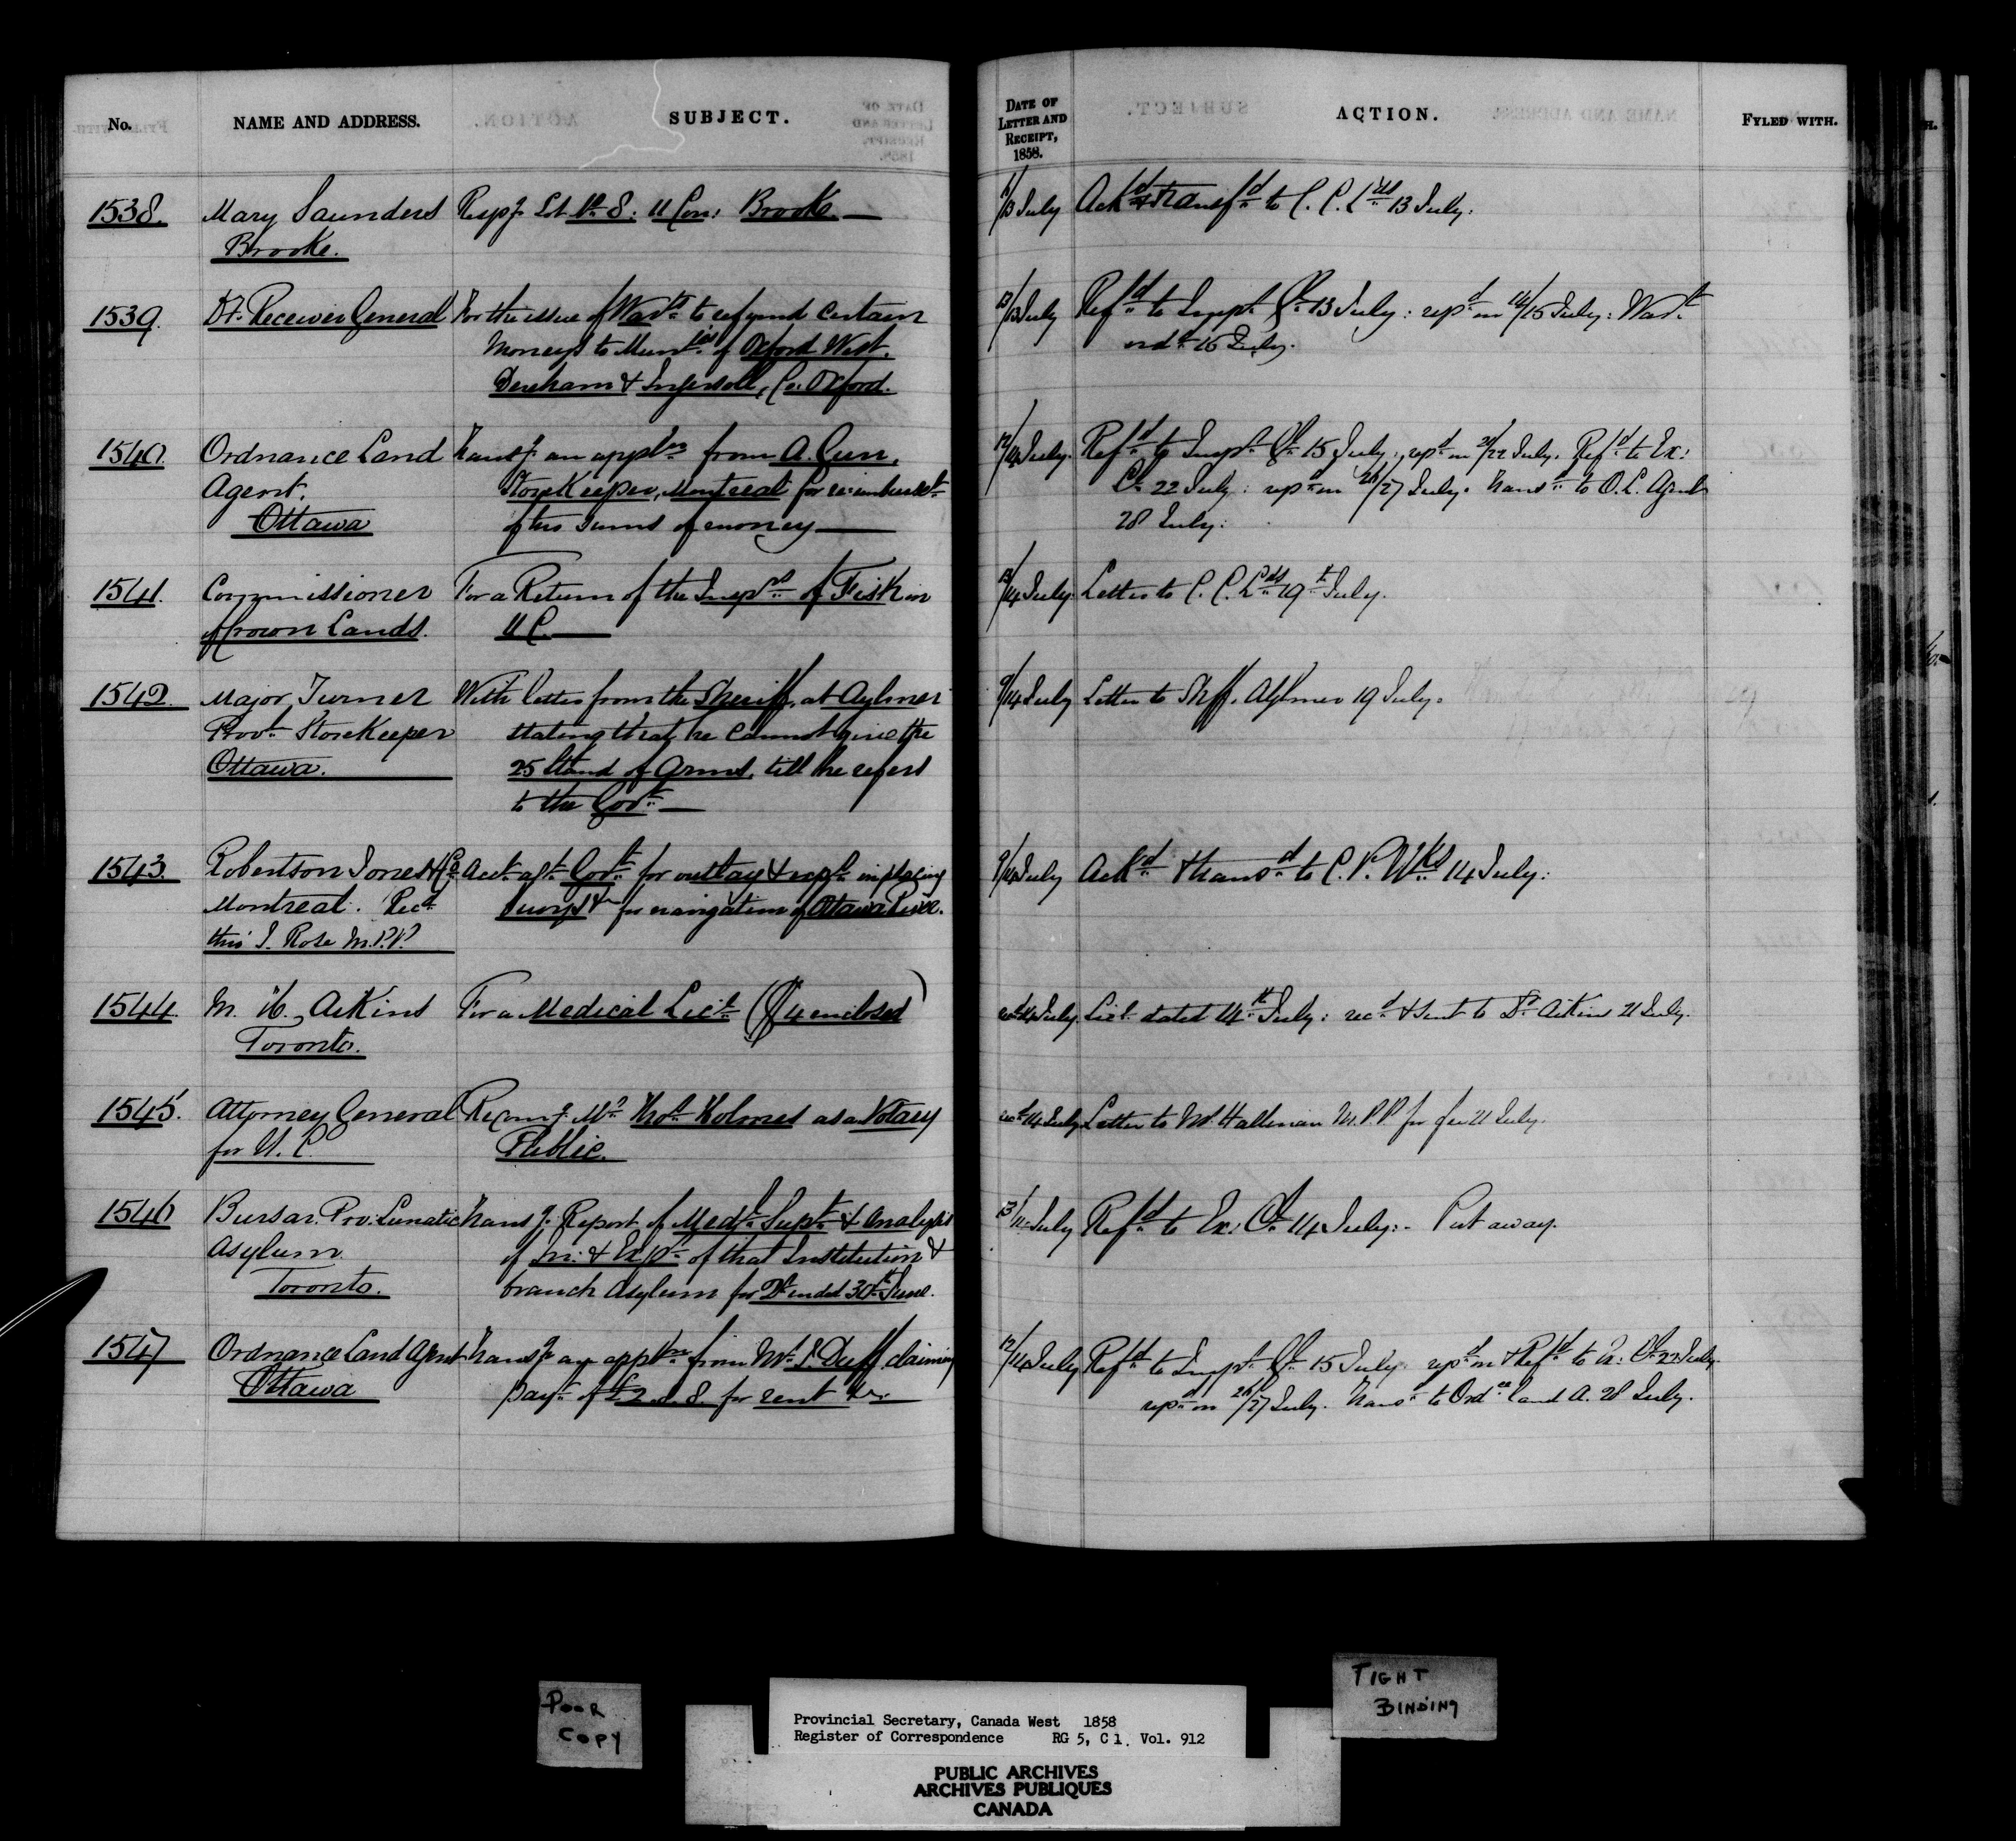 No. NAME AND ADDRESS. SUBJECT. DATE OF LETTER AND RECEIPT, 1858. ACTION. FYLED WITH.
1538. Mary Saunders Resp.g Lot No. 8. 11 Con: Brooke. 13 July Ackd & transfd to C. C. Lds 13 July.
Brooke.
1539. Dy. Receiver General For the issue of Wart. to refund certain 13/13 July Refd to Inspr Gl 13 July: repd on 14/15 July: Wart
moneys to Munties of Oxford West, ordd 16 July.
Dereham & Ingersoll, Co: Oxford.
1540. Ordnance Land Transg an appln from A. Gun, 12/14 July. Refd to Inspr Gl 15 July, repd on 21/22 July. Refd to Ex:
Agent. StoreKeeper, Montreal for reimburset Cl 22 July: repd on 26/27 July. Transd to O. L. Agent
Ottawa of two sums of money 28 July.
1541. Commissioner For a Return of the Insprs of Fish in 13/14 July. Letter to C. C. Lds 19th July.
of Crown Lands. U C.
1542. Major Turner With letter from the Sheriff, at Aylmer 9/14 July Letter to Shff. Aylmer 19 July.
Provl StoreKeeper stating that he cannot give the
Ottawa. 25 Stand of Arms, till he refers
to the Govt
1543. Robertson Jones & Co Acct agt Govt for outlay & expse in placing 9/14 July Ackd & transd to C. P. Wks 14 July.
Montreal. Recd buoys &c for navigation of Ottawa River.
thro' J. Rose M.P.P.
1544. M. H. Aikins For a Medical Lice ($4 enclosed) recd 14 July. Lice dated 14th July: recd & sent to Dr Aikins 21 July.
Toronto.
1545. Attorney General Recomg Mr Thos Holmes as a Notary recd 14 July Letter to Mr. Hallman M.P.P for fee 21 July.
for U. C. Public.
1546 Bursar. Pro: Lunatic Transg Report of Medl Supt & Analysis 13/14 July Refd to Ex: Cl 14 July:- Put away.
Asylum of In: & Expe of that Institution &
Toronto. branch Asylum for Qr ended 30th June.
1547 Ordnance Land Agent Transg an appln from Mr. L. Duff claiming 12/14 July Refd to Inspr Gl 15 July: repd on & Refd to Ex: Cl 22 July.
Ottawa payt of £2. . 8. for rent &c. repd on 26/27 July. Transd to Ordce Land A. 28 July.
POOR
COPY
TIGHT
BINDING
Provincial Secretary, Canada West 1858
Register of Correspondence RG 5, C 1. Vol. 912
PUBLIC ARCHIVES
ARCHIVES PUBLIQUES
CANADA